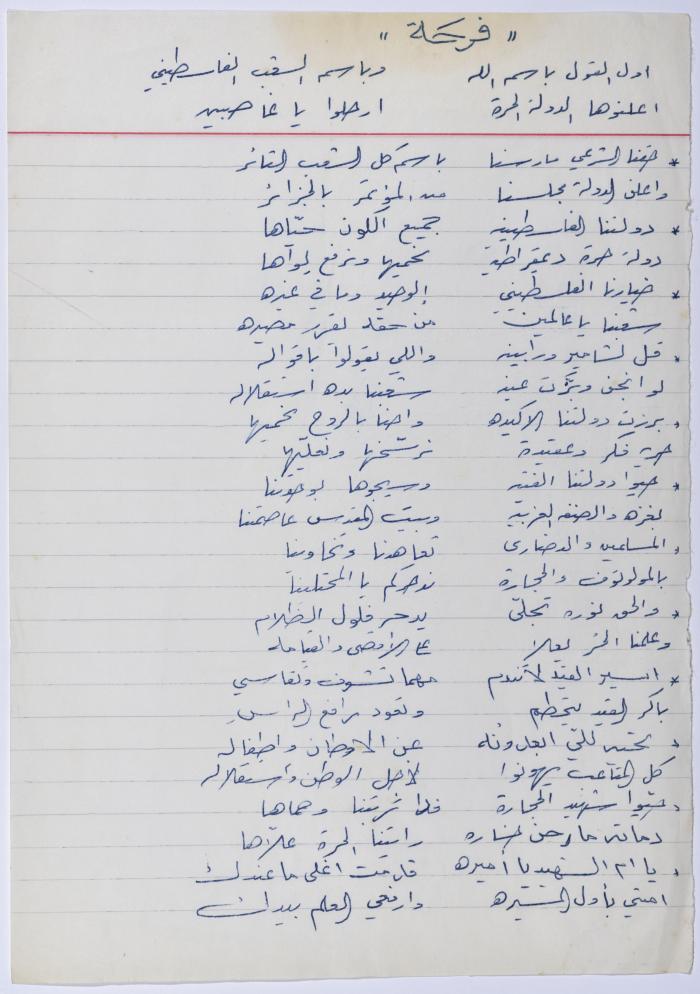 " فرحة "
اول القول باسم الله وباسم الشعب الفلسطيني
اعلنوها الدولة الحرة ارحلوا يا غاصبين
* حقنا الشرعي مارسنا باسم كل الشعب الثائر
واعلن الدولة مجلسنا من المؤتمر بالجزائر
* دولتنا الفلسطينيه جميع الكون حيّاها
دولة حرة ديمقراطية نحميها ونرفع لواها
* خيارنا الفلسطيني الوحيد وما في غيره
شعبنا يا عالمين من حقه يقرر مصيره
* قل لشامير ورابين واللي يقولوا باقواله
لو انجن وبزّت عينه شعبنا بده استقلاله
* برزت دولتنا الاكيده واحنا بالروح نحميها
حرية فكر وعقيدة نرسّخها ونعلّيها
* حيوا دولتنا الفتيه وسيجوها بوحدتنا
بغزه والضفه الغربية وبيت المقدس عاصمتنا
* المسلمين والنصارى تعاهدنا وتخاوينا
بالمولوتوف والحجارة ندحركم يا المحتلينا
* والحق نوره تجلّى يدحر فلول الظلام
وعلمنا الحر يعلا عا الأقصى والقيامه
* اسير القيد لا تندم مهما تشوف وتقاسي
باكر القيد يتحطم وتعود رافع الراس
* تحيه للّي ابعدونه عن الاوطان واطفاله
كل المتاعب يهونوا لاجل الوطن واستقلاله
* حيّوا شهيد الحجارة فدا ثربتنا وحماها
دماته ما رحن خساره رايتنا الحرة علاّها
* يا ام الشهيد يا أميره قدمت اغلى ما عندك
امشي بأول المسيره وارفعي العلم بيدك